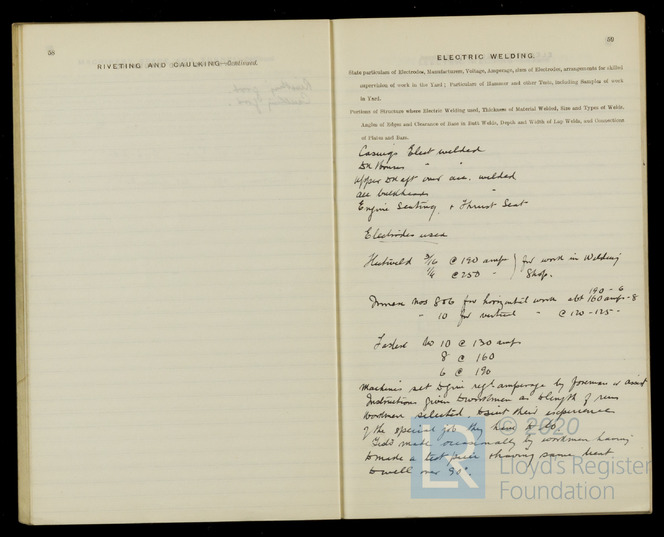 58
RIVETING AND CAULKING—Continued.
59
ELECTRIC WELDING.
State particulars of Electrodes, Manufacturers, Voltage, Amperage, sizes of Electrodes, arrangements for skilled
supervision of work in the Yard; Particulars of Hammer and other Tests, including Samples of work
in Yard.
Portions of Structure where Electric Welding used, Thickness of Material Welded, Size and Types of Welds,
Angles of Edges and Clearance of Bars in Butt Welds, Depth and Width of Lap Welds, and Connections
of Plates and Bars.
Casings Elect welded
Dk Houses " "
Upper Dk aft over acc. welded
all bulkheads "
Engine Seating, & Thrust Seat
Electrodes used
3/16 @ 190 amps } for work in Welding
1/4 @ 250 " } Shop.
190 - 6
nos 8 & 6 for horizontal work abt 160 amps - 8
" 10 for vertical " @ 120-125 -
No 10 @ 130 amps
8 @ 160
6 @ 190
Machines set to give reqd amperage by foreman or assist
Instructions given to workmen as to length of runs
Workmen selected to suit their experience
of the special job they have to do
made occasionally by workmen having
to made a test piece & having same bent
to well over 90°.
© 2020
LR
Lloyd's Register
Foundation